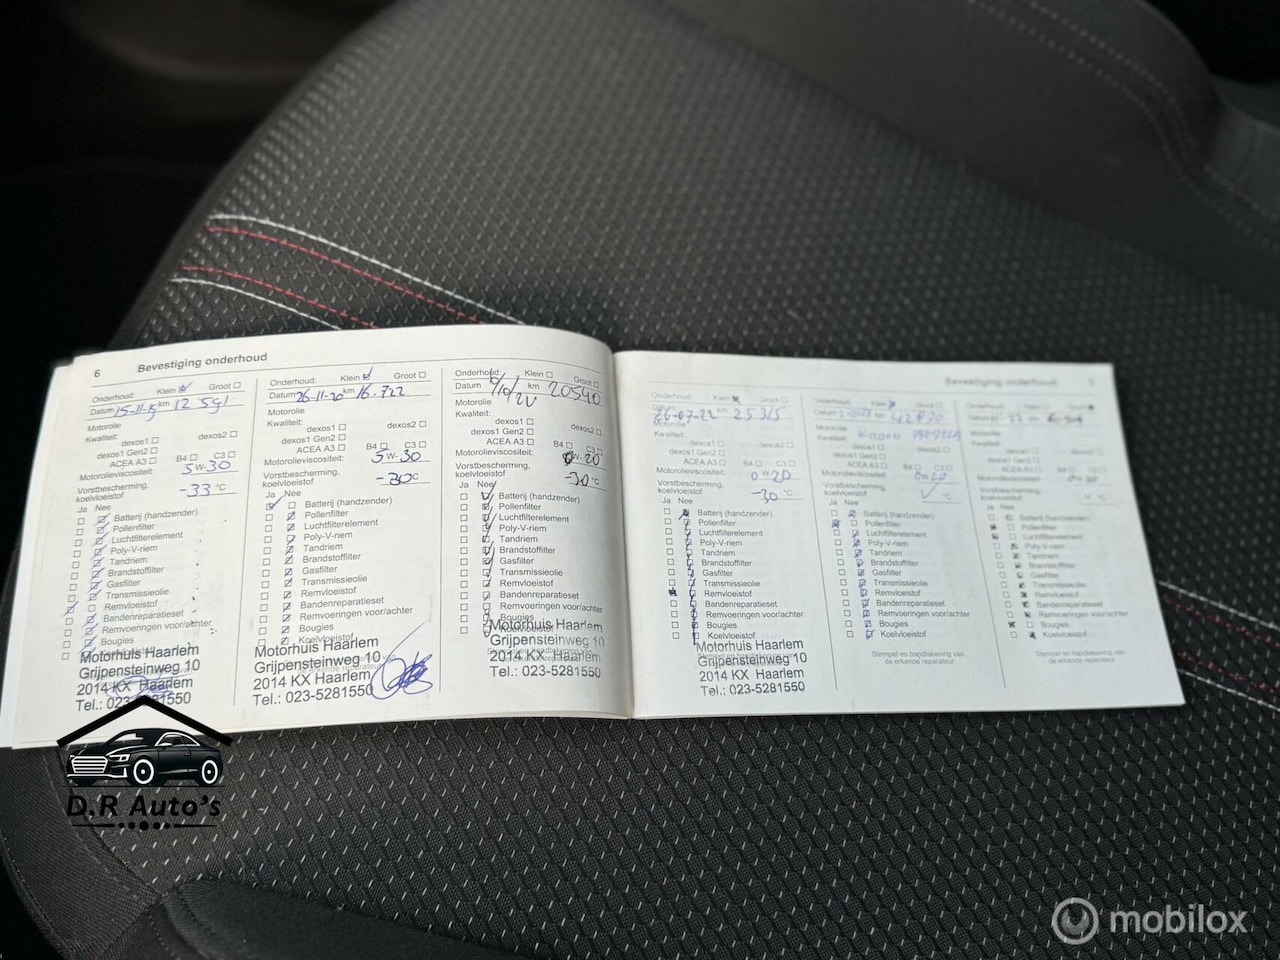 6 Bevestiging onderhoud
Onderhoud: Klein Groot
Datum 15-11-19 km 12 591
Motorolie
Kwaliteit:
dexos1 dexos2
dexos1 Gen2
ACEA A3 B4 C3
Motorolieviscositeit: 5W-30
Vorstbescherming, koelvloeistof -33 °C
Ja Nee
Batterij (handzender)
Pollenfilter
Luchtfilterelement
Poly-V-riem
Tandriem
Brandstoffilter
Gasfilter
Transmissieolie
Remvloeistof
Bandenreparatieset
Remvoeringen voor/achter
Bougies
Motorhuis Haarlem
Grijpensteinweg 10
2014 KX Haarlem
Tel.: 023-5281550
Onderhoud: Klein Groot
Datum 26-11-20 km 16.722
Motorolie
Kwaliteit:
dexos1 dexos2
dexos1 Gen2
ACEA A3 B4 C3
Motorolieviscositeit: 5W-30
Vorstbescherming, koelvloeistof -30 °C
Ja Nee
Batterij (handzender)
Pollenfilter
Luchtfilterelement
Poly-V-riem
Tandriem
Brandstoffilter
Gasfilter
Transmissieolie
Remvloeistof
Bandenreparatieset
Remvoeringen voor/achter
Bougies
Koelvloeistof
Motorhuis Haarlem
Grijpensteinweg 10
2014 KX Haarlem
Tel.: 023-5281550
Onderhoud: Klein Groot
Datum km 20590
Motorolie
Kwaliteit:
dexos1 dexos2
dexos1 Gen2
ACEA A3 B4 C3
Motorolieviscositeit: 0W-20
Vorstbescherming, koelvloeistof -30 °C
Ja Nee
Batterij (handzender)
Pollenfilter
Luchtfilterelement
Poly-V-riem
Tandriem
Brandstoffilter
Gasfilter
Transmissieolie
Remvloeistof
Bandenreparatieset
Remvoeringen voor/achter
Bougies
Koelvloeistof
Motorhuis Haarlem
Grijpensteinweg 10
2014 KX Haarlem
Tel.: 023-5281550
Bevestiging onderhoud 7
Onderhoud: Klein Groot
26-07-22 km 25315
Motorolie
Kwaliteit:
dexos1 dexos2
dexos1 Gen2
ACEA A3 B4 C3
Motorolieviscositeit: 0W20
Vorstbescherming, koelvloeistof -30 °C
Ja Nee
Batterij (handzender)
Pollenfilter
Luchtfilterelement
Poly-V-riem
Tandriem
Brandstoffilter
Gasfilter
Transmissieolie
Remvloeistof
Bandenreparatieset
Remvoeringen voor/achter
Bougies
Koelvloeistof
Motorhuis Haarlem
Grijpensteinweg 10
2014 KX Haarlem
Tel.: 023-5281550
Onderhoud: Klein Groot
Datum km
Motorolie
Kwaliteit:
dexos1 dexos2
dexos1 Gen2
ACEA A3 B4 C3
Motorolieviscositeit: 0W20
Vorstbescherming, koelvloeistof °C
Ja Nee
Batterij (handzender)
Pollenfilter
Luchtfilterelement
Poly-V-riem
Tandriem
Brandstoffilter
Gasfilter
Transmissieolie
Remvloeistof
Bandenreparatieset
Remvoeringen voor/achter
Bougies
Koelvloeistof
Stempel en handtekening van de erkende reparateur
Onderhoud: Klein Groot
Motorolie
Kwaliteit:
dexos1 dexos2
dexos1 Gen2
ACEA A3 B4 C3
Motorolieviscositeit:
Vorstbescherming, koelvloeistof °C
Ja Nee
Batterij (handzender)
Pollenfilter
Luchtfilterelement
Poly-V-riem
Tandriem
Brandstoffilter
Gasfilter
Transmissieolie
Remvloeistof
Bandenreparatieset
Remvoeringen voor/achter
Bougies
Koelvloeistof
Stempel en handtekening van de erkende reparateur
D.R Auto's
mobilox